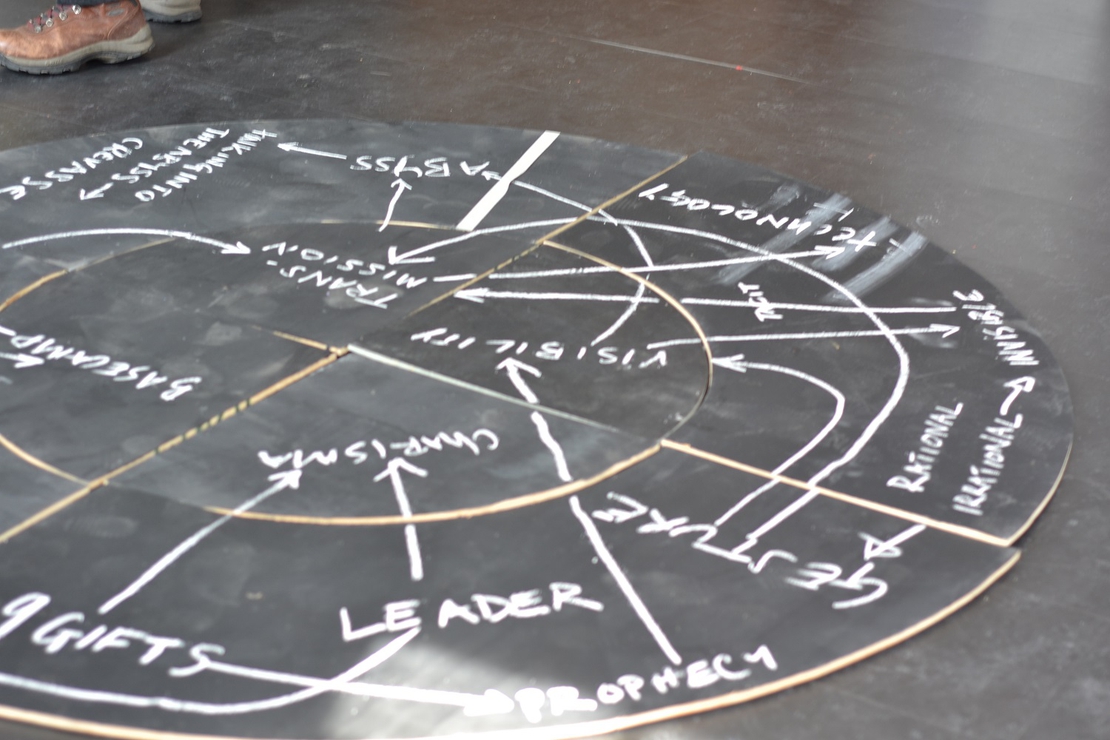 TALKING INTO
THE ABYSS →
CREVASSE
ABYSS
TECHNOLOGY
TRANS-
MISSION
INVISIBLE
VISIBILITY
BASECAMP
RATIONAL
IRRATIONAL
CHARISMA
GESTURE
LEADER
9 GIFTS
PROPHECY